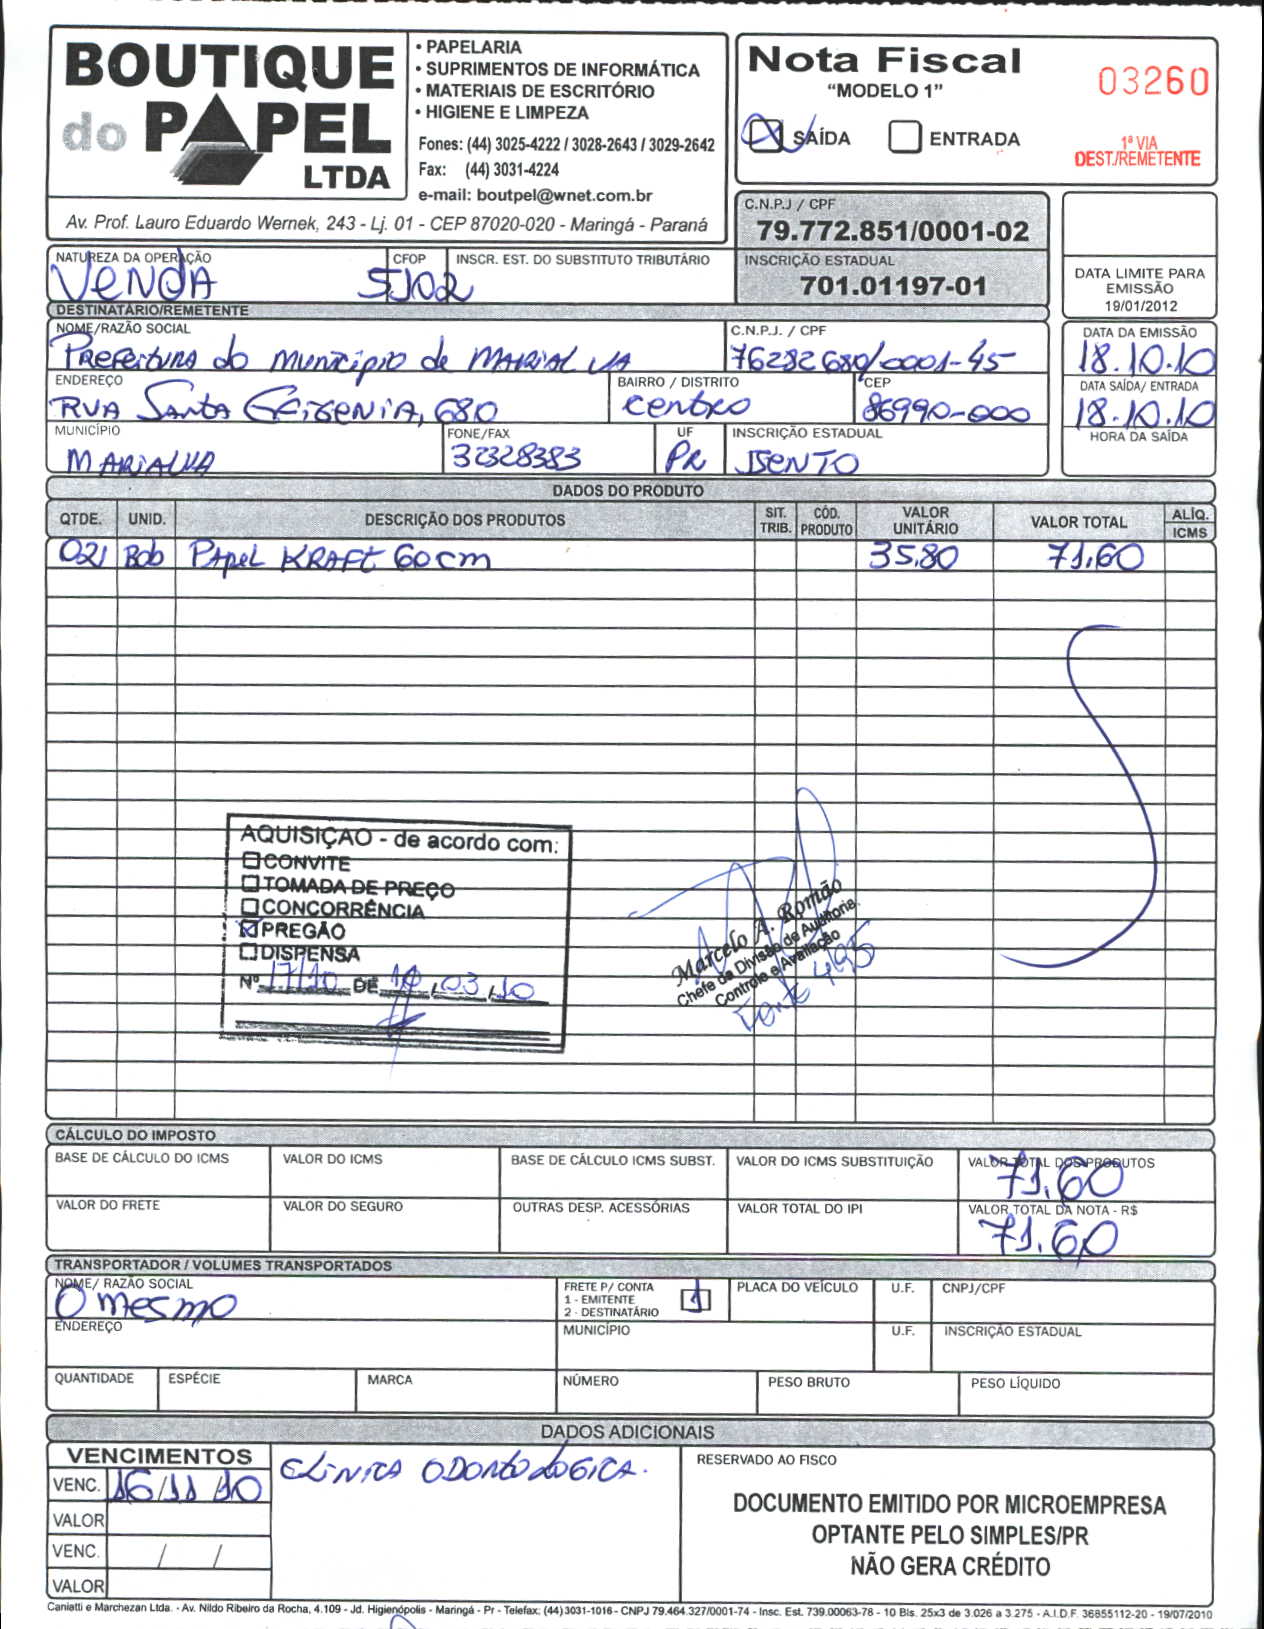 BOUTIQUE
do PAPEL
LTDA
• PAPELARIA
• SUPRIMENTOS DE INFORMÁTICA
• MATERIAIS DE ESCRITÓRIO
• HIGIENE E LIMPEZA
Fones: (44) 3025-4222 / 3028-2643 / 3029-2642
Fax: (44) 3031-4224
e-mail: boutpel@wnet.com.br
Av. Prof. Lauro Eduardo Wernek, 243 - Lj. 01 - CEP 87020-020 - Maringá - Paraná
Nota Fiscal
"MODELO 1"
03260
SAÍDA ENTRADA
1ª VIA
DEST./REMETENTE
C.N.P.J / CPF
79.772.851/0001-02
INSCRIÇÃO ESTADUAL
701.01197-01
DATA LIMITE PARA
EMISSÃO
19/01/2012
NATUREZA DA OPERAÇÃO CFOP INSCR. EST. DO SUBSTITUTO TRIBUTÁRIO
VENDA 5102
DESTINATÁRIO/REMETENTE
NOME/RAZÃO SOCIAL C.N.P.J. / CPF DATA DA EMISSÃO
Prefeitura do Município de MARIALVA 76282680/0001-45 18.10.10
ENDEREÇO BAIRRO / DISTRITO CEP DATA SAÍDA/ ENTRADA
RUA Santa Efigenia, 680 centro 86990-000 18.10.10
MUNICÍPIO FONE/FAX UF INSCRIÇÃO ESTADUAL HORA DA SAÍDA
MARIALVA 32328383 PR ISENTO
DADOS DO PRODUTO
QTDE. UNID. DESCRIÇÃO DOS PRODUTOS SIT. TRIB. CÓD. PRODUTO VALOR UNITÁRIO VALOR TOTAL ALÍQ. ICMS
02 Bob Papel KRAFT 60cm 35,80 71,60
AQUISIÇÃO - de acordo com:
CONVITE
TOMADA DE PREÇO
CONCORRÊNCIA
PREGÃO
DISPENSA
Nº 17/10 DE 10,03,10
Marcelo A. Romão
Chefe da Divisão de Auditoria
Controle e Avaliação
Fonte 495
CÁLCULO DO IMPOSTO
BASE DE CÁLCULO DO ICMS VALOR DO ICMS BASE DE CÁLCULO ICMS SUBST. VALOR DO ICMS SUBSTITUIÇÃO VALOR TOTAL DOS PRODUTOS
71,60
VALOR DO FRETE VALOR DO SEGURO OUTRAS DESP. ACESSÓRIAS VALOR TOTAL DO IPI VALOR TOTAL DA NOTA - R$
71.60
TRANSPORTADOR / VOLUMES TRANSPORTADOS
NOME/ RAZÃO SOCIAL FRETE P/ CONTA PLACA DO VEÍCULO U.F. CNPJ/CPF
O mesmo 1 - EMITENTE 1
2 - DESTINATÁRIO
ENDEREÇO MUNICÍPIO U.F. INSCRIÇÃO ESTADUAL
QUANTIDADE ESPÉCIE MARCA NÚMERO PESO BRUTO PESO LÍQUIDO
DADOS ADICIONAIS
VENCIMENTOS
VENC. 16/11/10
VALOR
VENC. / /
VALOR
CLINICA ODONTOLOGICA.
RESERVADO AO FISCO
DOCUMENTO EMITIDO POR MICROEMPRESA
OPTANTE PELO SIMPLES/PR
NÃO GERA CRÉDITO
Caniatti e Marchezan Ltda. - Av. Nildo Ribeiro da Rocha, 4.109 - Jd. Higienópolis - Maringá - Pr - Telefax: (44) 3031-1016 - CNPJ 79.464.327/0001-74 - Insc. Est. 739.00063-78 - 10 Bls. 25x3 de 3.026 a 3.275 - A.I.D.F. 36855112-20 - 19/07/2010